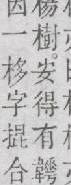 楊樹。安得有韡
因一栘字提合